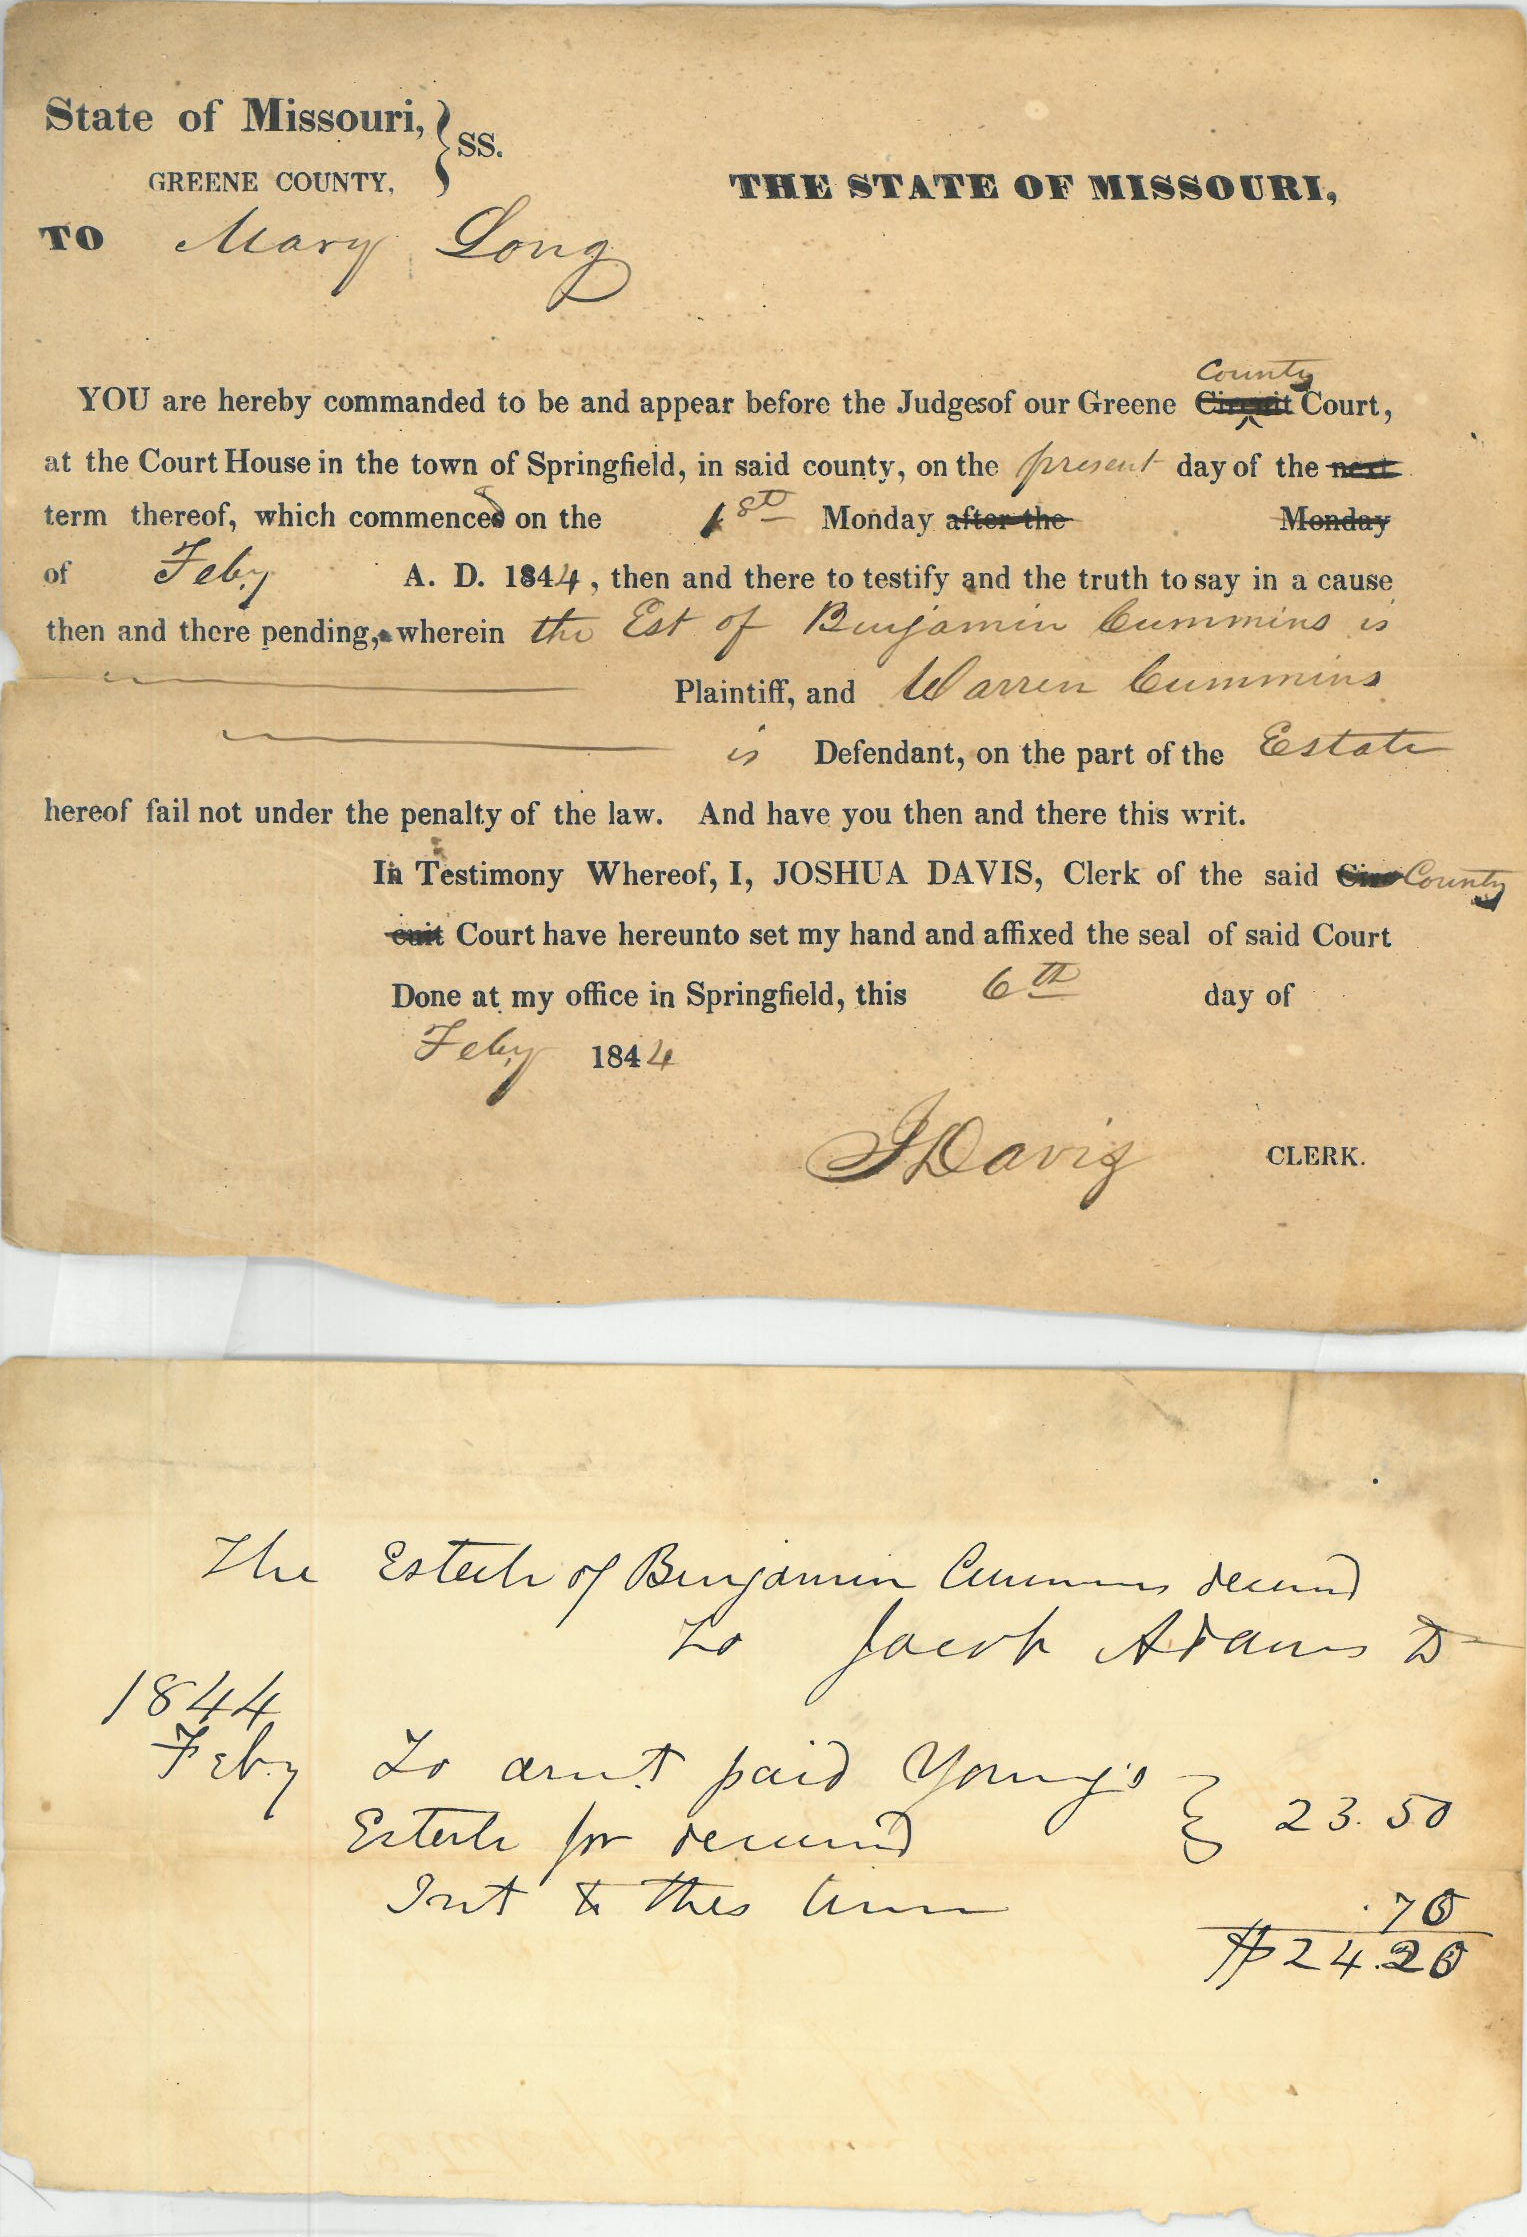 State of Missouri, } SS.
GREENE COUNTY,
THE STATE OF MISSOURI,
TO Mary Long
County
YOU are hereby commanded to be and appear before the Judgesof our Greene Circuit Court,
at the Court House in the town of Springfield, in said county, on the present day of the next
term thereof, which commenced on the 1st Monday after the Monday
of Feby A. D. 1844, then and there to testify and the truth to say in a cause
then and there pending, wherein the Est of Benjamin Cummins is
Plaintiff, and Warren Cummins
is Defendant, on the part of the Estate
hereof fail not under the penalty of the law. And have you then and there this writ.
In Testimony Whereof, I, JOSHUA DAVIS, Clerk of the said Cir County
cuit Court have hereunto set my hand and affixed the seal of said Court
Done at my office in Springfield, this 6th day of
Feby 1844
J Davis CLERK.
The Estate of Benjamin Cummins
To Jacob Adams Dr
1844
Feby To amt paid Young's
Estate for } 23.50
Int to this time .70
$24.20